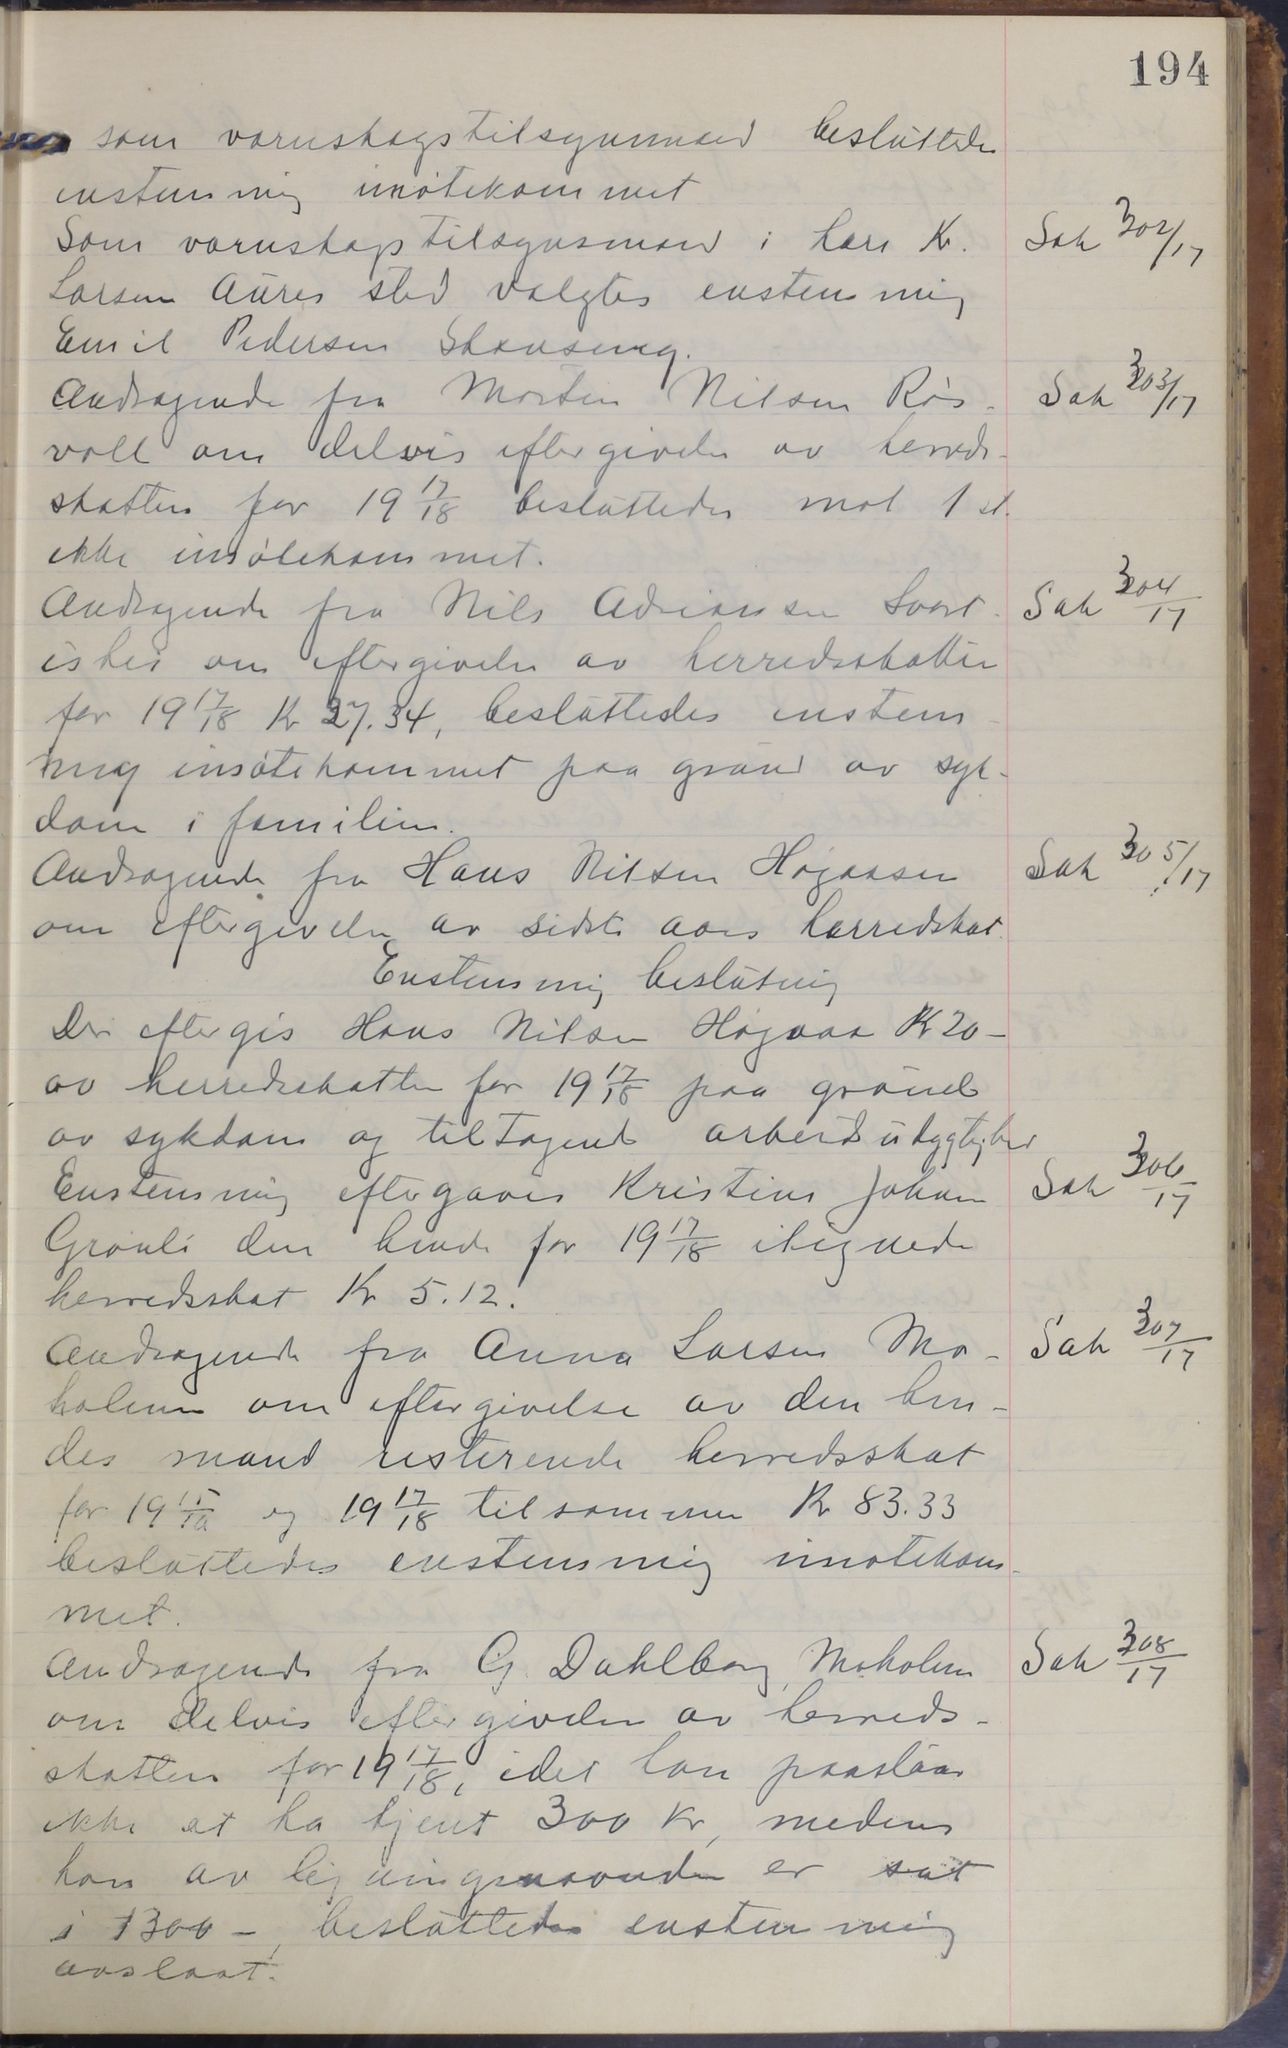 194
somværnskogstilsynmand besluttedes
enstemmig imøtekommet
Som værnskogstilsynsmand i Lars Kr. Sak 302/17
Larsen Aures sted valgtes enstemmig
Emil Pedersen
Andragende fra Morten Nilsen Røs- Sak 303/17
voll om delvis eftergivelse av herreds-
skatten for 19 17/18 besluttedes mot 1 st.
ikke imøtekommet.
Andragende fra Nils Adriansen Svart- Sak 304/17
ishei om eftergivelse av herredsskatten
for 19 17/18 Kr 27.34, besluttedes enstem-
mig imøtekommet paa grund av syk-
dom i familien.
Andragende fra Hans Nilsen Høgaasen Sak 305/17
om eftergivelse av sidste aars herredskat.
Enstemmig beslutning
Der eftergis Hans Nilsen Høgaas Kr 20-
av herredsskatten for 19 17/18 paa grund
av sykdom og tiltagende arbeidsudygtighed
Enstemmig eftergaves Kristine Johan Sak 306/17
Grønli den hende for 19 17/18 ilignede
herredsskat Kr 5.12.
Andragende fra Anna Larsen Mo- Sak 307/17
holmen om eftergivelse av den hen-
des mand resterende herredsskat
for 19 15/16 og 19 17/18 tilsammen Kr 83.33
besluttedes enstemmig imøtekom-
met.
Andragende fra G. Dahlberg, Moholmen Sak 308/17
om delvis eftergivelse av herreds-
skatten for 19 17/18, idet han paastaar
ikke at ha tjent 300 Kr, medens
han av ligningsnævnden er sat
i 1300 -, besluttedes enstemmig
avslaat.